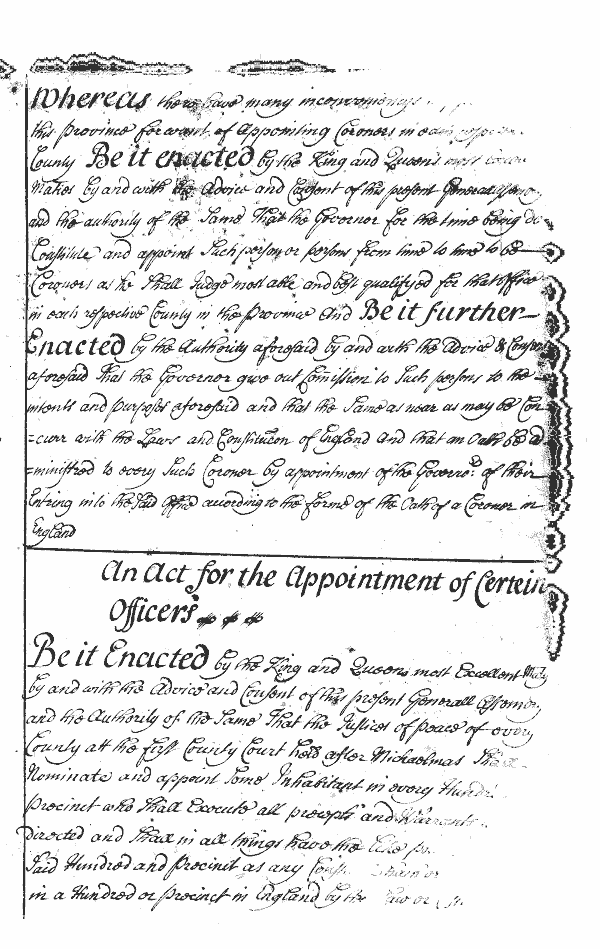 Whereas there have many inconveniencys
this Province for want of Appointing Coroners in each
County Be it enacted by the King and Queens most
Matses by and with the Advice and Consent of this present Generall
and the authority of the Same That the Governor for the time being do
Constitute and appoint Such person or persons from time to time to be
Coroners as he Shall Judge most able and best qualifyed for that office
in each respective County in the Province And Be it further
Enacted by the Authority aforesaid by and with the Advice & Consent
aforesaid That the Governor give out Comission to Such persons to the
intents and purposes aforesaid and that the Same as near as may be Con
=curr with the Laws and Constitucon of England and that an Oath be ad
=ministred to every Such Coroner by appointment of the Governor. of their
Entring into the Said Office according to the forme of the Oath of a Coroner in
England
An Act for the Appointment of Certein
Officers
Be it Enacted by the King and Queens most Excellent Maty
by and with the Advice and Consent of this present Generall Assembly
and the Authority of the Same That the Justices of peace of every
County att the first County Court held after Michaelmas Shall
Nominate and appoint Some Inhabitant in every
Precinct who Shall Execute all precepts and Warrants
directed and Shall in all things have the
Said Hundred and Precinct as any
in a Hundred or precinct in England by the Law or